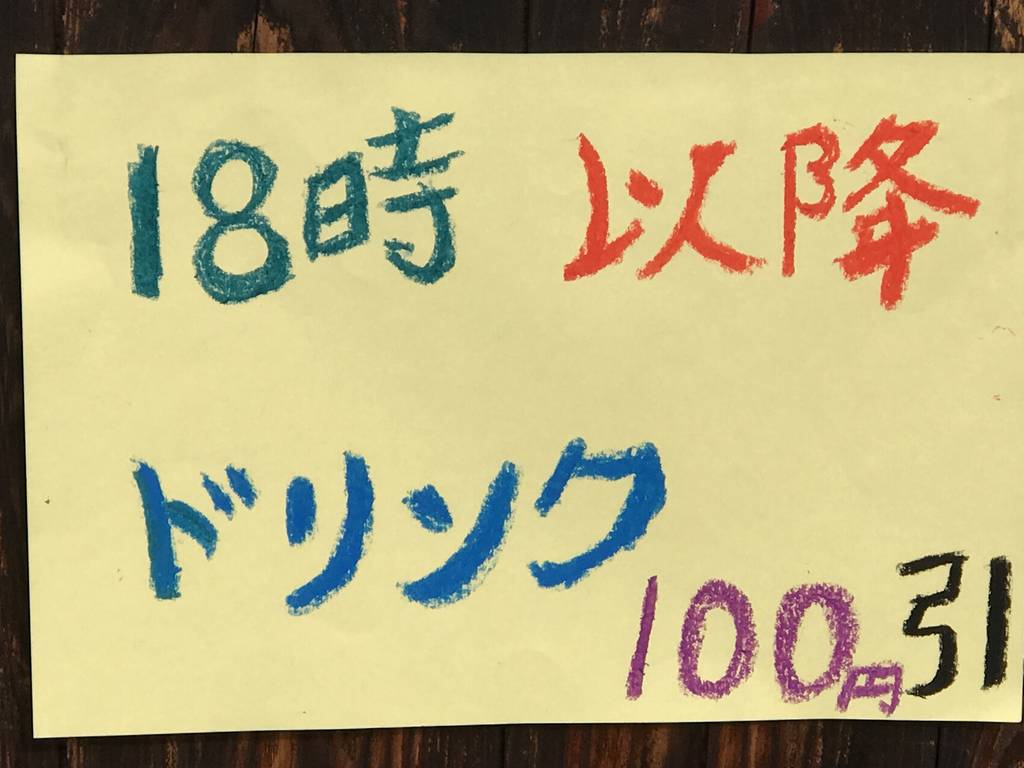 18時 以降
ドリンク
100円引